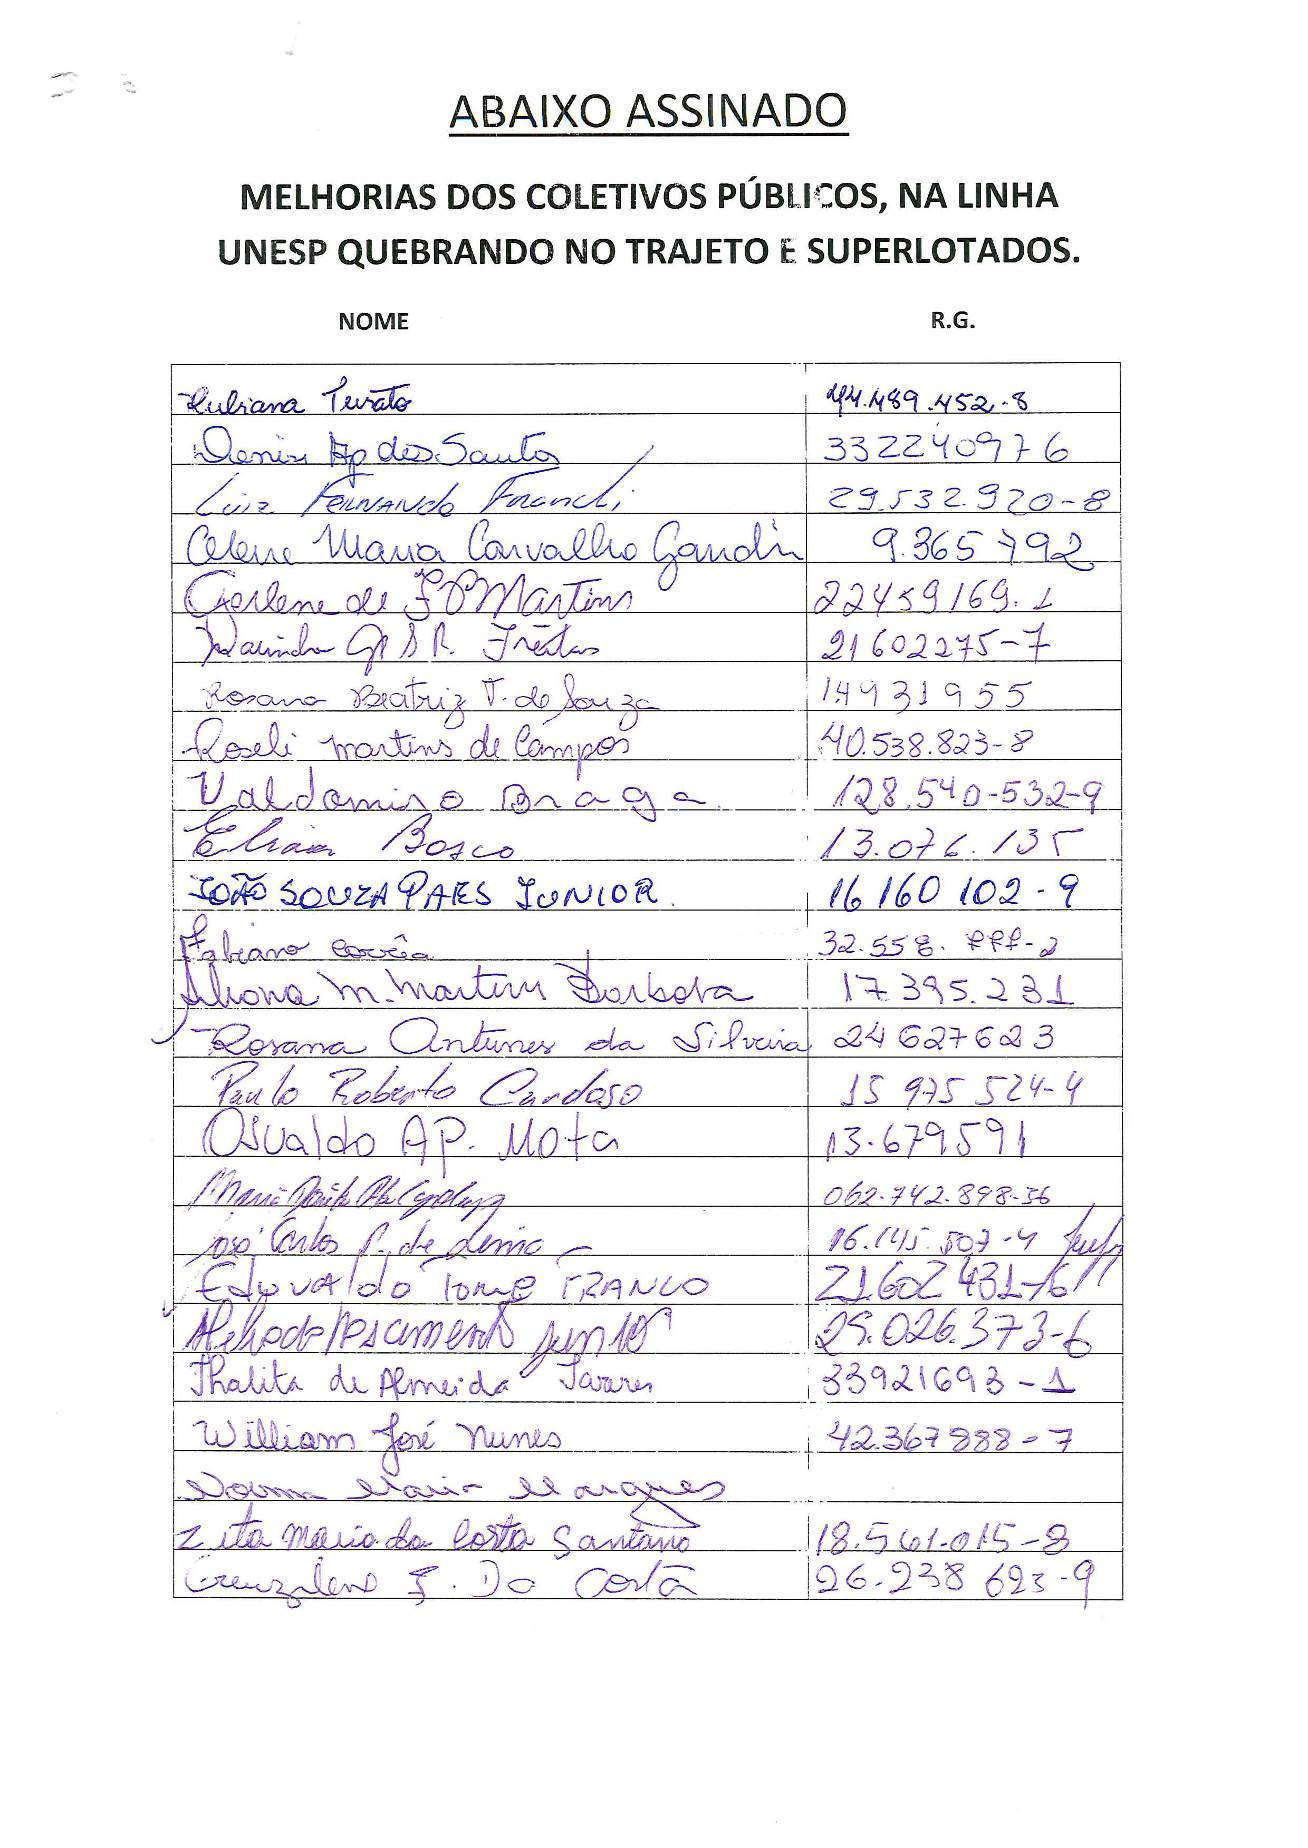 ABAIXO ASSINADO
MELHORIAS DOS COLETIVOS PÚBLICOS, NA LINHA
UNESP QUEBRANDO NO TRAJETO E SUPERLOTADOS.
NOME R.G.
44.489.452-8
Santos 332240976
Luiz Fernando Franchi 29.532.920-8
Celene Maria Carvalho Gandin 9.365792
Gerlene de Martins 22459169.1
Freitas 21602275-7
Rosana Beatriz T. de Souza 14931955
Roseli Martins de Campos 40.538.823-8
Valdomiro Braga 128.540-532-9
Bosco 13.076.135
JOÃO SOUZA PAES JUNIOR. 16 160 102-9
Fabiano Corrêa 32.558.
M. Martins Barbosa 17.395.231
Rosana Antunes da Silveira 24627623
Paulo Roberto Cardoso 15 975 524-4
Osvaldo AP. Mota 13.679591
Maria 062.742.898-36
José Carlos P. de Lima 16.145.507-4
Edivaldo Tome FRANCO 21602431-6
Nascimento junior 25.026.373-6
Thalita de Almeida Tavares 33921693-1
William José Nunes 42.367888-7
Norma Maria Marques
Zita Maria da Costa Santano 18.561.015-8
Da Costa 26.238 623-9